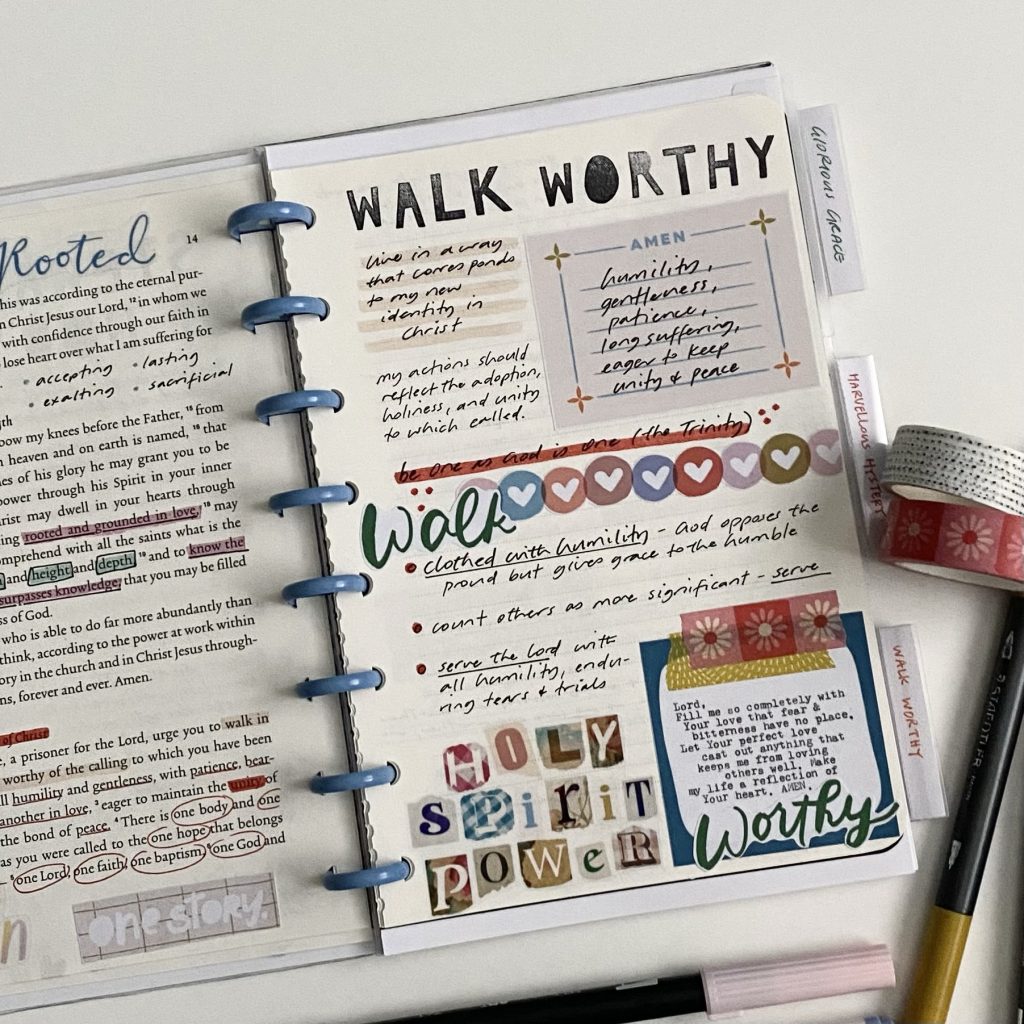 Rooted
14
his was according to the eternal pur-
n Christ Jesus our Lord, ¹² in whom we
with confidence through our faith in
lose heart over what I am suffering for
• accepting • lasting
• exalting • sacrificial
bow my knees before the Father, ¹⁵ from
heaven and on earth is named, ¹⁶ that
es of his glory he may grant you to be
power through his Spirit in your inner
rist may dwell in your hearts through
ing rooted and grounded in love, ¹⁸ may
omprehend with all the saints what is the
and height and depth, ¹⁹ and to know the
surpasses knowledge, that you may be filled
ss of God.
who is able to do far more abundantly than
think, according to the power at work within
ory in the church and in Christ Jesus through-
ns, forever and ever. Amen.
of Christ
e, a prisoner for the Lord, urge you to walk in
worthy of the calling to which you have been
ll humility and gentleness, with patience, bear-
another in love, ³ eager to maintain the unity of
the bond of peace. ⁴ There is one body and one
as you were called to the one hope that belongs
⁵ one Lord, one faith, one baptism, ⁶ one God and
one story.
WALK WORTHY
live in a way
that corresponds
to my new
identity in
Christ
my actions should
reflect the adoption,
holiness, and unity
to which called.
AMEN
humility,
gentleness,
patience,
long suffering,
eager to keep
unity & peace
be one as God is one (the Trinity)
Walk
• clothed with humility - God opposes the
proud but gives grace to the humble
• count others as more significant - serve
• serve the Lord with
all humility, endu-
ring tears & trials
HOLY
SPiRiT
POWeR
Lord,
Fill me so completely with
Your love that fear &
bitterness have no place.
Let Your perfect love
cast out anything that
keeps me from loving
others well. Make
my life a reflection of
Your heart. AMEN.
Worthy
GLORIOUS GRACE
MARVELLOUS MYSTERY
WALK WORTHY